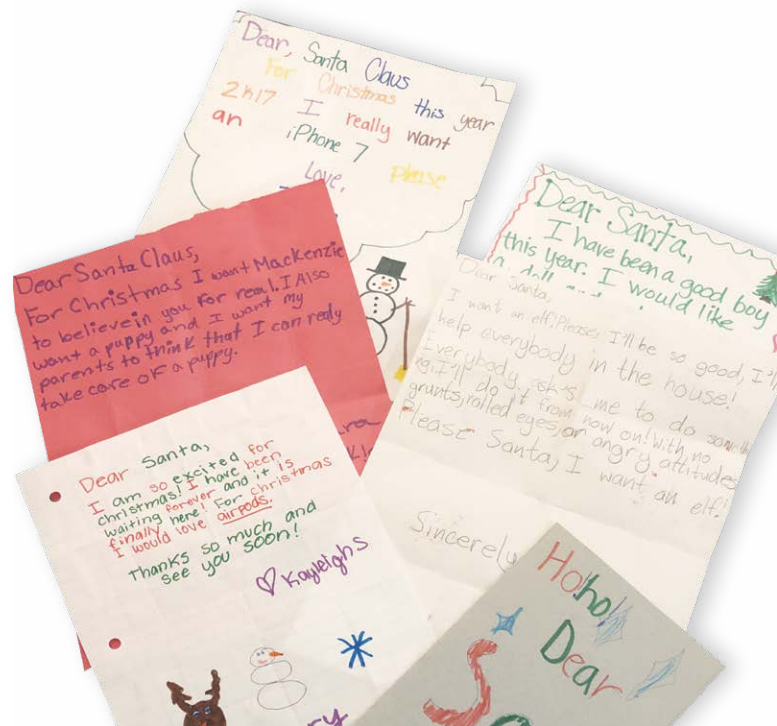 Dear, Santa Claus
For Christmas this year
2k17 I really want
an iPhone 7 please
Love,
Dear Santa Claus,
For Christmas I want Mackenzie
to believe in you for real. I Also
want a puppy and I want my
parents to think that I can realy
take care of a puppy.
Dear Santa,
I have been a good boy
this year. I would like
a doll
Dear Santa,
I want an elf. Please, I'll be so good, I'll
help everybody in the house!
Everybody asks me to do
I'll do it from now on! With no
grunts, rolled eyes, or angry attitudes
Please Santa, I want an elf!
Sincerely
Dear Santa,
I am so excited for
christmas! I have been
waiting forever and it is
finally here! For christmas
I would love airpods.
Thanks so much and
see you soon!
Kayleighs
Ho!ho!
Dear